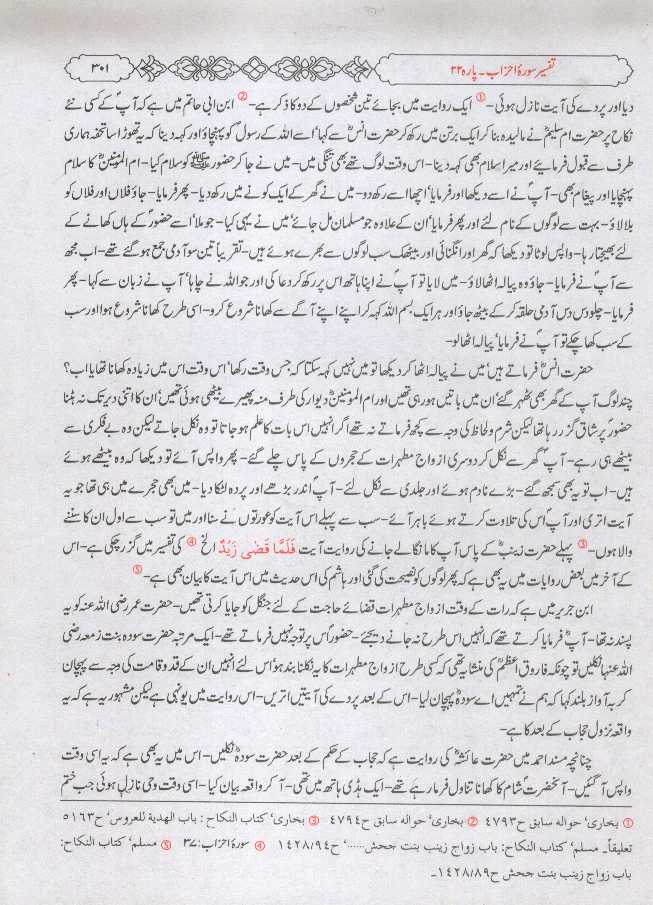 تفسیر سورۂ احزاب۔ پارہ ۲۲
۳۰۱
دیا اور پردے کی آیت نازل ہوئی- ① ایک روایت میں بجائے تین شخصوں کے دو کا ذکر ہے- ② ابن ابی حاتم میں ہے کہ آپؐ کے کسی نئے
نکاح پر حضرت ام سلیمؓ نے مالیدہ بنا کر ایک برتن میں رکھ کر حضرت انسؓ سے کہا' اسے اللہ کے رسولؐ کو پہنچاؤ اور کہہ دینا کہ یہ تھوڑا سا تحفہ ہماری
طرف سے قبول فرمایئے اور میرا سلام بھی کہہ دینا- اس وقت لوگ تھے بھی تنگی میں- میں نے جا کر حضور ﷺ کو سلام کیا- ام المومنینؓ کا سلام
پہنچایا اور پیغام بھی- آپؐ نے اسے دیکھا اور فرمایا' اچھا اسے رکھ دو- میں نے گھر کے ایک کونے میں رکھ دیا- پھر فرمایا- جاؤ فلاں اور فلاں کو
بلا لاؤ- بہت سے لوگوں کے نام لئے اور پھر فرمایا' ان کے علاوہ جو مسلمان مل جائے' میں نے یہی کیا- جو ملا' اسے حضورؐ کے ہاں کھانے کے
لئے بھیجتا رہا- واپس لوٹا تو دیکھا کہ گھر اور انگنائی اور بیٹھک سب لوگوں سے بھرے ہوئے ہیں- تقریباً تین سو آدمی جمع ہو گئے تھے- اب مجھ
سے آپؐ نے فرمایا- جاؤ وہ پیالہ اٹھا لاؤ- میں لایا تو آپؐ نے اپنا ہاتھ اس پر رکھ کر دعا کی اور جو اللہ نے چاہا' آپؐ نے زبان سے کہا- پھر
فرمایا- چلو دس دس آدمی حلقہ کر کے بیٹھ جاؤ اور ہر ایک بسم اللہ کہہ کر اپنے اپنے آگے سے کھانا شروع کرو- اسی طرح کھانا شروع ہوا اور سب
کے سب کھا چکے تو آپؐ نے فرمایا' پیالہ اٹھا لو-
حضرت انسؓ فرماتے ہیں' میں نے پیالہ اٹھا کر دیکھا تو میں نہیں کہہ سکتا کہ جس وقت رکھا' اس وقت اس میں زیادہ کھانا تھا یا اب؟
چند لوگ آپ کے گھر میں ٹھہر گئے' ان میں باتیں ہو رہی تھیں اور ام المومنینؓ دیوار کی طرف منہ پھیرے بیٹھی ہوئی تھیں' ان کا اتنی دیر تک نہ ہٹنا
حضورؐ پر شاق گزر رہا تھا لیکن شرم و لحاظ کی وجہ سے کچھ فرماتے نہ تھے اگر انہیں اس بات کا علم ہو جاتا تو وہ نکل جاتے لیکن وہ بے فکری سے
بیٹھے ہی رہے- آپؐ گھر سے نکل کر دوسری ازواج مطہرات کے حجروں کے پاس چلے گئے- پھر واپس آئے تو دیکھا کہ وہ بیٹھے ہوئے
ہیں- اب تو یہ بھی سمجھ گئے- بڑے نادم ہوئے اور جلدی سے نکل لئے- آپؐ اندر بڑھے اور پردہ لٹکا دیا- میں بھی حجرے میں ہی تھا جو یہ
آیت اتری اور آپؐ اس کی تلاوت کرتے ہوئے باہر آئے- سب سے پہلے اس آیت کو عورتوں نے سنا اور میں تو سب سے اول ان کا سننے
والا ہوں- ③ پہلے حضرت زینبؓ کے پاس آپؐ کا مانگا لے جانے کی روایت آیت فَلَمَّا قَضٰی زَیْدٌ الخ ④ کی تفسیر میں گزر چکی ہے- اس
کے آخر میں بعض روایات میں یہ بھی ہے کہ پھر لوگوں کو نصیحت کی گئی اور ہاشم کی اس حدیث میں اس آیت کا بیان بھی ہے- ⑤
ابن جریر میں ہے کہ رات کے وقت ازواج مطہرات قضائے حاجت کے لئے جنگل کو جایا کرتی تھیں- حضرت عمر رضی اللہ عنہ کو یہ
پسند نہ تھا- آپؓ فرمایا کرتے تھے کہ انہیں اس طرح نہ جانے دیجئے- حضورؐ اس پر توجہ نہیں فرماتے تھے- ایک مرتبہ حضرت سودہ بنت زمعہ رضی
اللہ عنہا نکلیں تو چونکہ فاروق اعظمؓ کی منشا یہ تھی کہ کسی طرح ازواج مطہرات کا یہ نکلنا بند ہو' اس لئے انہیں ان کے قد و قامت کی وجہ سے پہچان
کر بہ آواز بلند کہا کہ ہم نے تمہیں اے سودہؓ پہچان لیا- اس کے بعد پردے کی آیتیں اتریں- اس روایت میں یونہی ہے لیکن مشہور یہ ہے کہ یہ
واقعہ نزول حجاب کے بعد کا ہے-
چنانچہ مسند احمد میں حضرت عائشہؓ کی روایت ہے کہ حجاب کے حکم کے بعد حضرت سودہؓ نکلیں- اس میں یہ بھی ہے کہ یہ اسی وقت
واپس آ گئیں- آنحضرتؐ شام کا کھانا تناول فرما رہے تھے- ایک ہڈی ہاتھ میں تھی- آ کر واقعہ بیان کیا- اسی وقت وحی نازل ہوئی جب ختم
① بخاری' حوالہ سابق ح۴۷۹۳ ② بخاری' حوالہ سابق ح۴۷۹۴ ③ بخاری' کتاب النکاح: باب الھدیة للعروس' ح۵۱۶۳
تعلیقاً- مسلم' کتاب النکاح: باب زواج زینب بنت جحش......' ح۱۴۲۸/۹۴ ④ سورۂ احزاب: ۳۷ ⑤ مسلم' کتاب النکاح:
باب زواج زینب بنت جحش ح۱۴۲۸/۸۹-